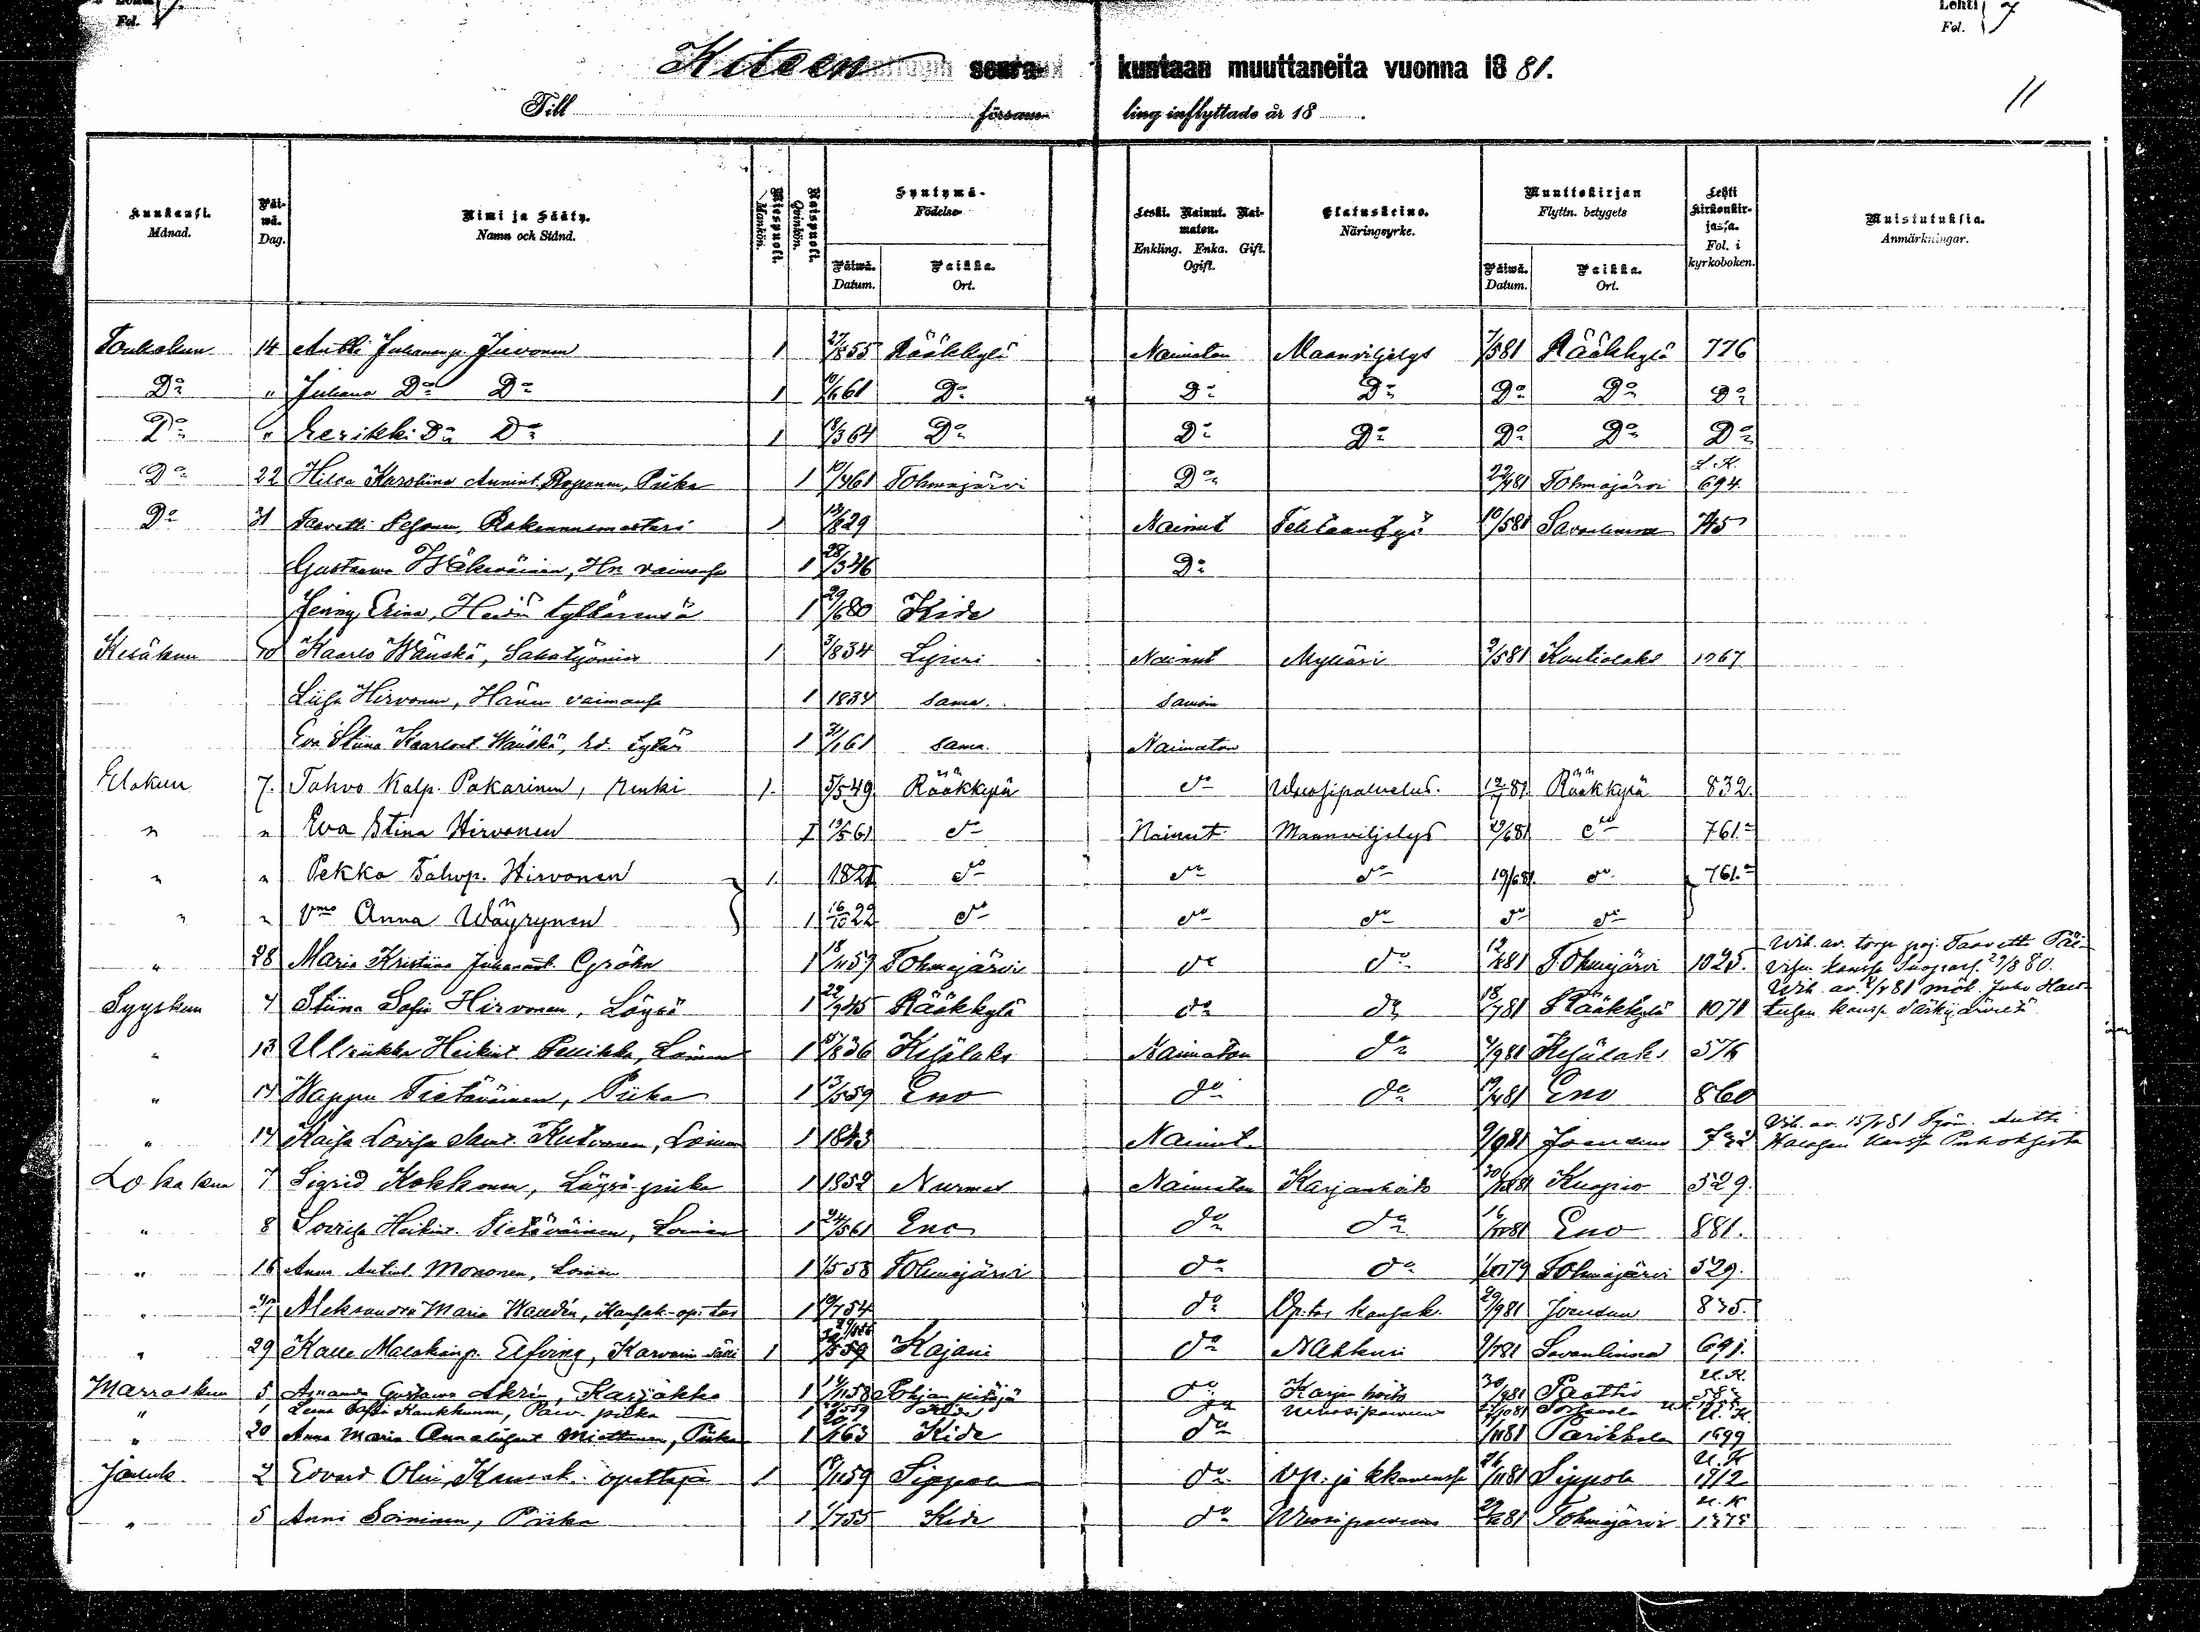 Lehti Fol. 7
Kiteen seurakuntaan muuttaneita vuonna 1881.
Till församling inflyttade år 18 .
11
Kuukausi. Månad. Päiwä. Dag. Nimi ja Sääty. Namn och Stånd. Miespuoli. Mankön. Naispuoli. Qvinkön. Syntymä- Födelse- Päiwä. Datum. Paikka. Ort. Leski. Nainut. Naimaton. Enkling. Enka. Gift. Ogift. Elatuskeino. Näringsyrke. Muuttokirjan Flyttn. betygets Päiwä. Datum. Paikka. Ort. Lehti kirkonkirjassa. Fol. i kyrkoboken. Muistutuksia. Anmärkningar.
Toukokuu 14 Antti Juhananp. Juvonen 1 27/8 55 Rääkkylä Naimaton Maanviljelys 7/5 81 Rääkkylä 776
Do " Juhana Do Do 1 61 Do Do Do Do Do Do
Do " Eerikki Do Do 1 /3 64 Do Do Do Do Do Do
Do 22 Hilda Karoliina Roponen, Piika 1 10/4 61 Tohmajärvi Do 22/4 81 Tohmajärvi L.K. 694
Do 31 Taavetti, Rakennusmestari 1 29 Nainut 10/5 81 Savonlinna 745
Gustaava Wäkeväinen, Hn vaimonsa 1 28/3 46 Do
Jenny Elina, Heidän tyttärensä 1 29/6 80 Kide
Kesäkuu 10 Kaarlo Wänskä, Sahatyömies 1 3/8 34 Liperi Nainut Mylläri 2/5 81 Kontiolaks 1067
Liisa Hirvonen, Hänen vaimonsa 1 1834 sama. Samoin
Eva Stiina Kaarlont. Wänskä, Ed. tytär 1 61 sama. Naimaton
Elokuu 7. Tahvo Kalp. Pakarinen, renki 1. 5/5 49 Rääkkylä do Wuosipalvelus. 12/7 81 Rääkkylä 832.
" " Eva Stina Hirvonen 1 19/5 61 do Nainut Maanviljelys 19/6 81 do 761.
" " Pekka Tahvp. Hirvonen 1. 1821 do do do 19/6 81. do 761.
" " Vmo Anna Wäyrynen 1 16/10 22 do do do do do
" 28 Maria Kristiina Juhanant. Gröhn 1 18/11 57 Tohmajärvi do do 12/ 81 Tohmajärvi 1025. Wih. av. torp. poj. Taavetti
kanssa 29/8 80.
Syyskuu 4 Stiina Sofia Hirvonen, Löysä 1 22/9 45 Rääkkylä do do 18/7 81 Rääkkylä 1071 Wih. av. 81 mök. Juho
kanssa Särkijärveltä
" 13 Ulriikka Heikint. Penikka, Loinen 1 /8 36 Kesälaks Naimaton do /9 81 Kesälaks 576
" 17 Wappu Tietäväinen, Piika 1 13/5 59 Eno do do 19/4 81 Eno 860
" 17 Kaisa Lovisa Kutvonen, Loinen 1 1843 Nainut 9/9 81 Joensuu Vih. av. 15/ 81 Työm. Antti
kanssa
Lokakuu 7 Sigrid Kokkonen, Löysä piika 1 1852 Nurmes Naimaton Karjanhoito 81 Kuopio 529.
" 8 Lovisa Heikint. Tietäväinen, Loinen 1 24/5 61 Eno do do 16/ 81 Eno 881.
" 16 Anna Antint. Mononen, Loinen 1 58 Tohmajärvi do do 79 Tohmajärvi 529.
" Aleksandra Maria Wandén, Kansak-opettaj 1 19/7 54 do Opettaj kansak. 29/9 81 Joensuu 835.
" 29 Kalle Malakinp. Elfving, Karvari 1 59 Kajani do Nahkuri 9/ 81 Savonlinna 691.
Marraskuu 5 Amanda Gustava, Karjakko 1 58 Pohjan pitäjä do Karjan hoito 30/9 81 U.K.
" 1 Leena Sofia Kaukkunen, piika 1 Kide do Wuosipalvelus 81
" 20 Anna Maria Annaliisant Miettinen, Piika 1 63 Kide do 81 Parikkala U.K. 1699
Jouluk. 2 Edvard Olin, Kansak. opettaja 1 59 Sippola do Op. ja 26/11 81 Sippola U.K. 1712
" 5 Anni Soininen, Piika 1 1/7 55 Kide do Wuosipalvelus 81 Tohmajärvi U.K.